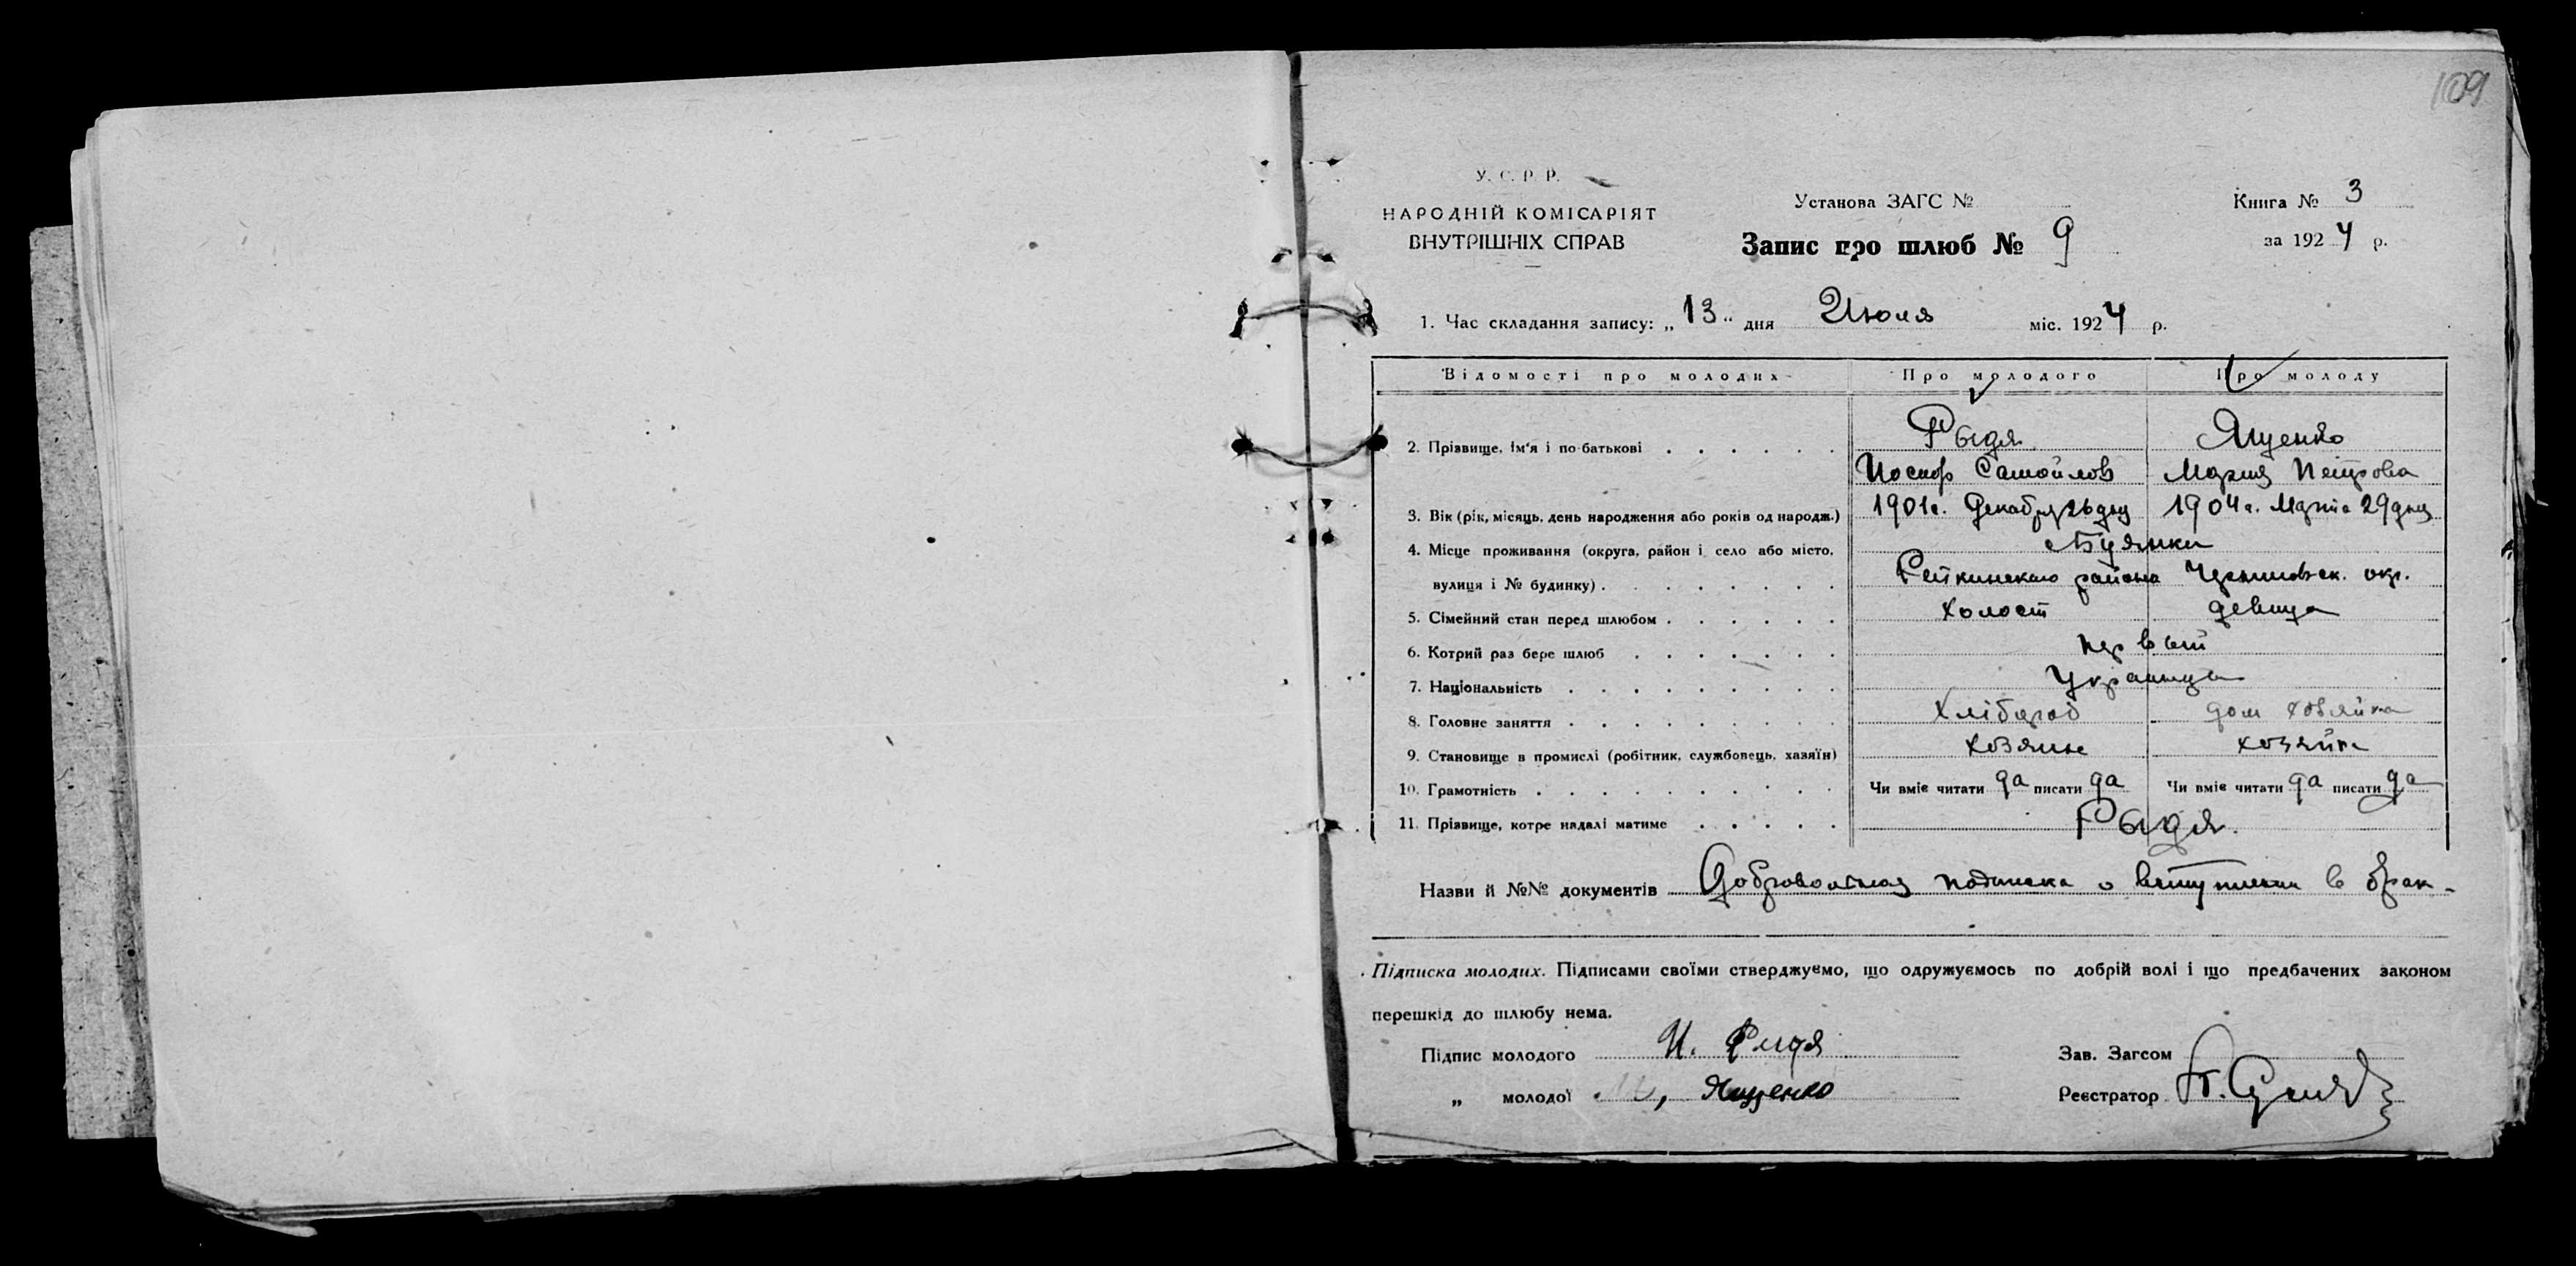 109
У. С. Р. Р.
НАРОДНІЙ КОМІСАРІЯТ
ВНУТРІШНІХ СПРАВ
Установа ЗАГС №
Запис про шлюб № 9
Книга № 3
за 1924 р.
1. Час складання запису: „13" дня Июля міс. 1924 р.
Відомості про молодих Про молодого Про молоду
2. Прізвище, ім'я і по-батькові . . . . . . Рыдя Ященко
Иосиф Самойлов Мария Петрова
3. Вік (рік, місяць, день народження або років од народж.) 1901г. Декабря 26 дня 1904г. Марта 29 дня
4. Місце проживання (округа, район і село або місто, Буянки
вулиця і № будинку) . . . . . . . . Репкинского района Черниговск. окр.
5. Сімейний стан перед шлюбом . . . . . . холост девица
6. Котрий раз бере шлюб . . . . . . . первый
7. Національність . . . . . . . . . Украинцы
8. Головне заняття . . . . . . . . . Хлібороб дом хозяйка
9. Становище в промислі (робітник, службовець, хазяїн) хозяин хозяйка
10. Грамотність . . . . . . . . . . Чи вміє читати да писати да Чи вміє читати да писати да
11. Прізвище, котре надалі матиме . . . . . Рыдя.
Назви й №№ документів Добровольная подписка о вступлении в брак -
Підписка молодих. Підписами своїми стверджуємо, що одружуємось по добрій волі і що предбачених законом
перешкід до шлюбу нема.
Підпис молодого И. Ридя
„ молодої М, Ященко
Зав. Загсом
Реєстратор